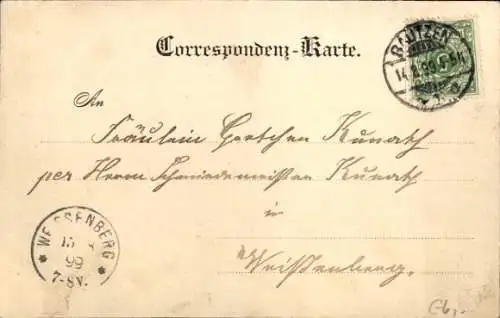 Correspondenz-Karte.
BAUTZEN
14. 99
An
Fräulein Gretchen Kunath
per Herrn Schmiedemeister Kunath
in
Weißenberg.
WEISSENBERG
99
7-8V.